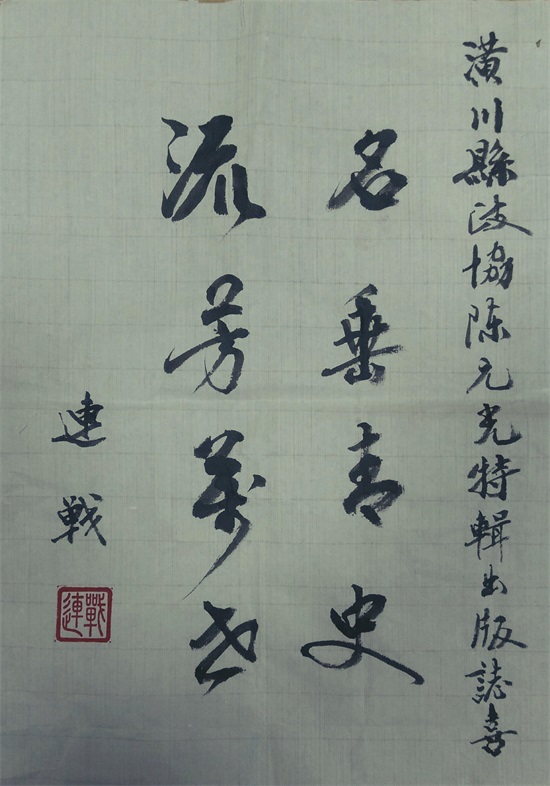 潢川縣政協陈元光特輯出版誌喜
名垂青史
流芳萬世
連戰
連戰